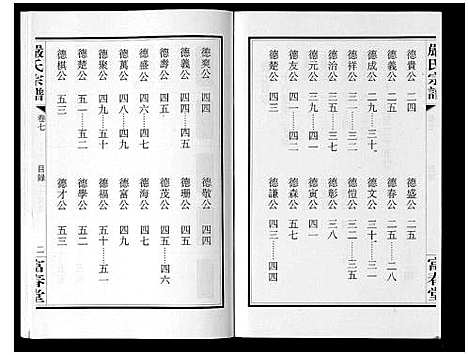 嚴氏宗譜
富春堂
德貴公 二四 德盛公 二五
德義公 德春公 二八
德成公 二九……三十 德文公 三十……三一
德祥公 三一……三二 德愷公 三二
德治公 三八 德彰公 三八
德元公 三九……四一 德寅公 四一
德森公 五七
德楚公 德謙公 四三……四四
德爽公 四四 德敬公 四四
德義公 四四……四五 德珊公 四五
德壽公 四五 德茂公 四五……四六
德盛公 四六……四八 德海公 四七
德萬公 四八……四九 德富公 四九
德聚公 四九……五十 德福公 五十……五一
德楚公 五一……五二 德學公 五二
德棋公 五三 德才公 五三
嚴氏宗譜 卷七 目錄 二 富春堂